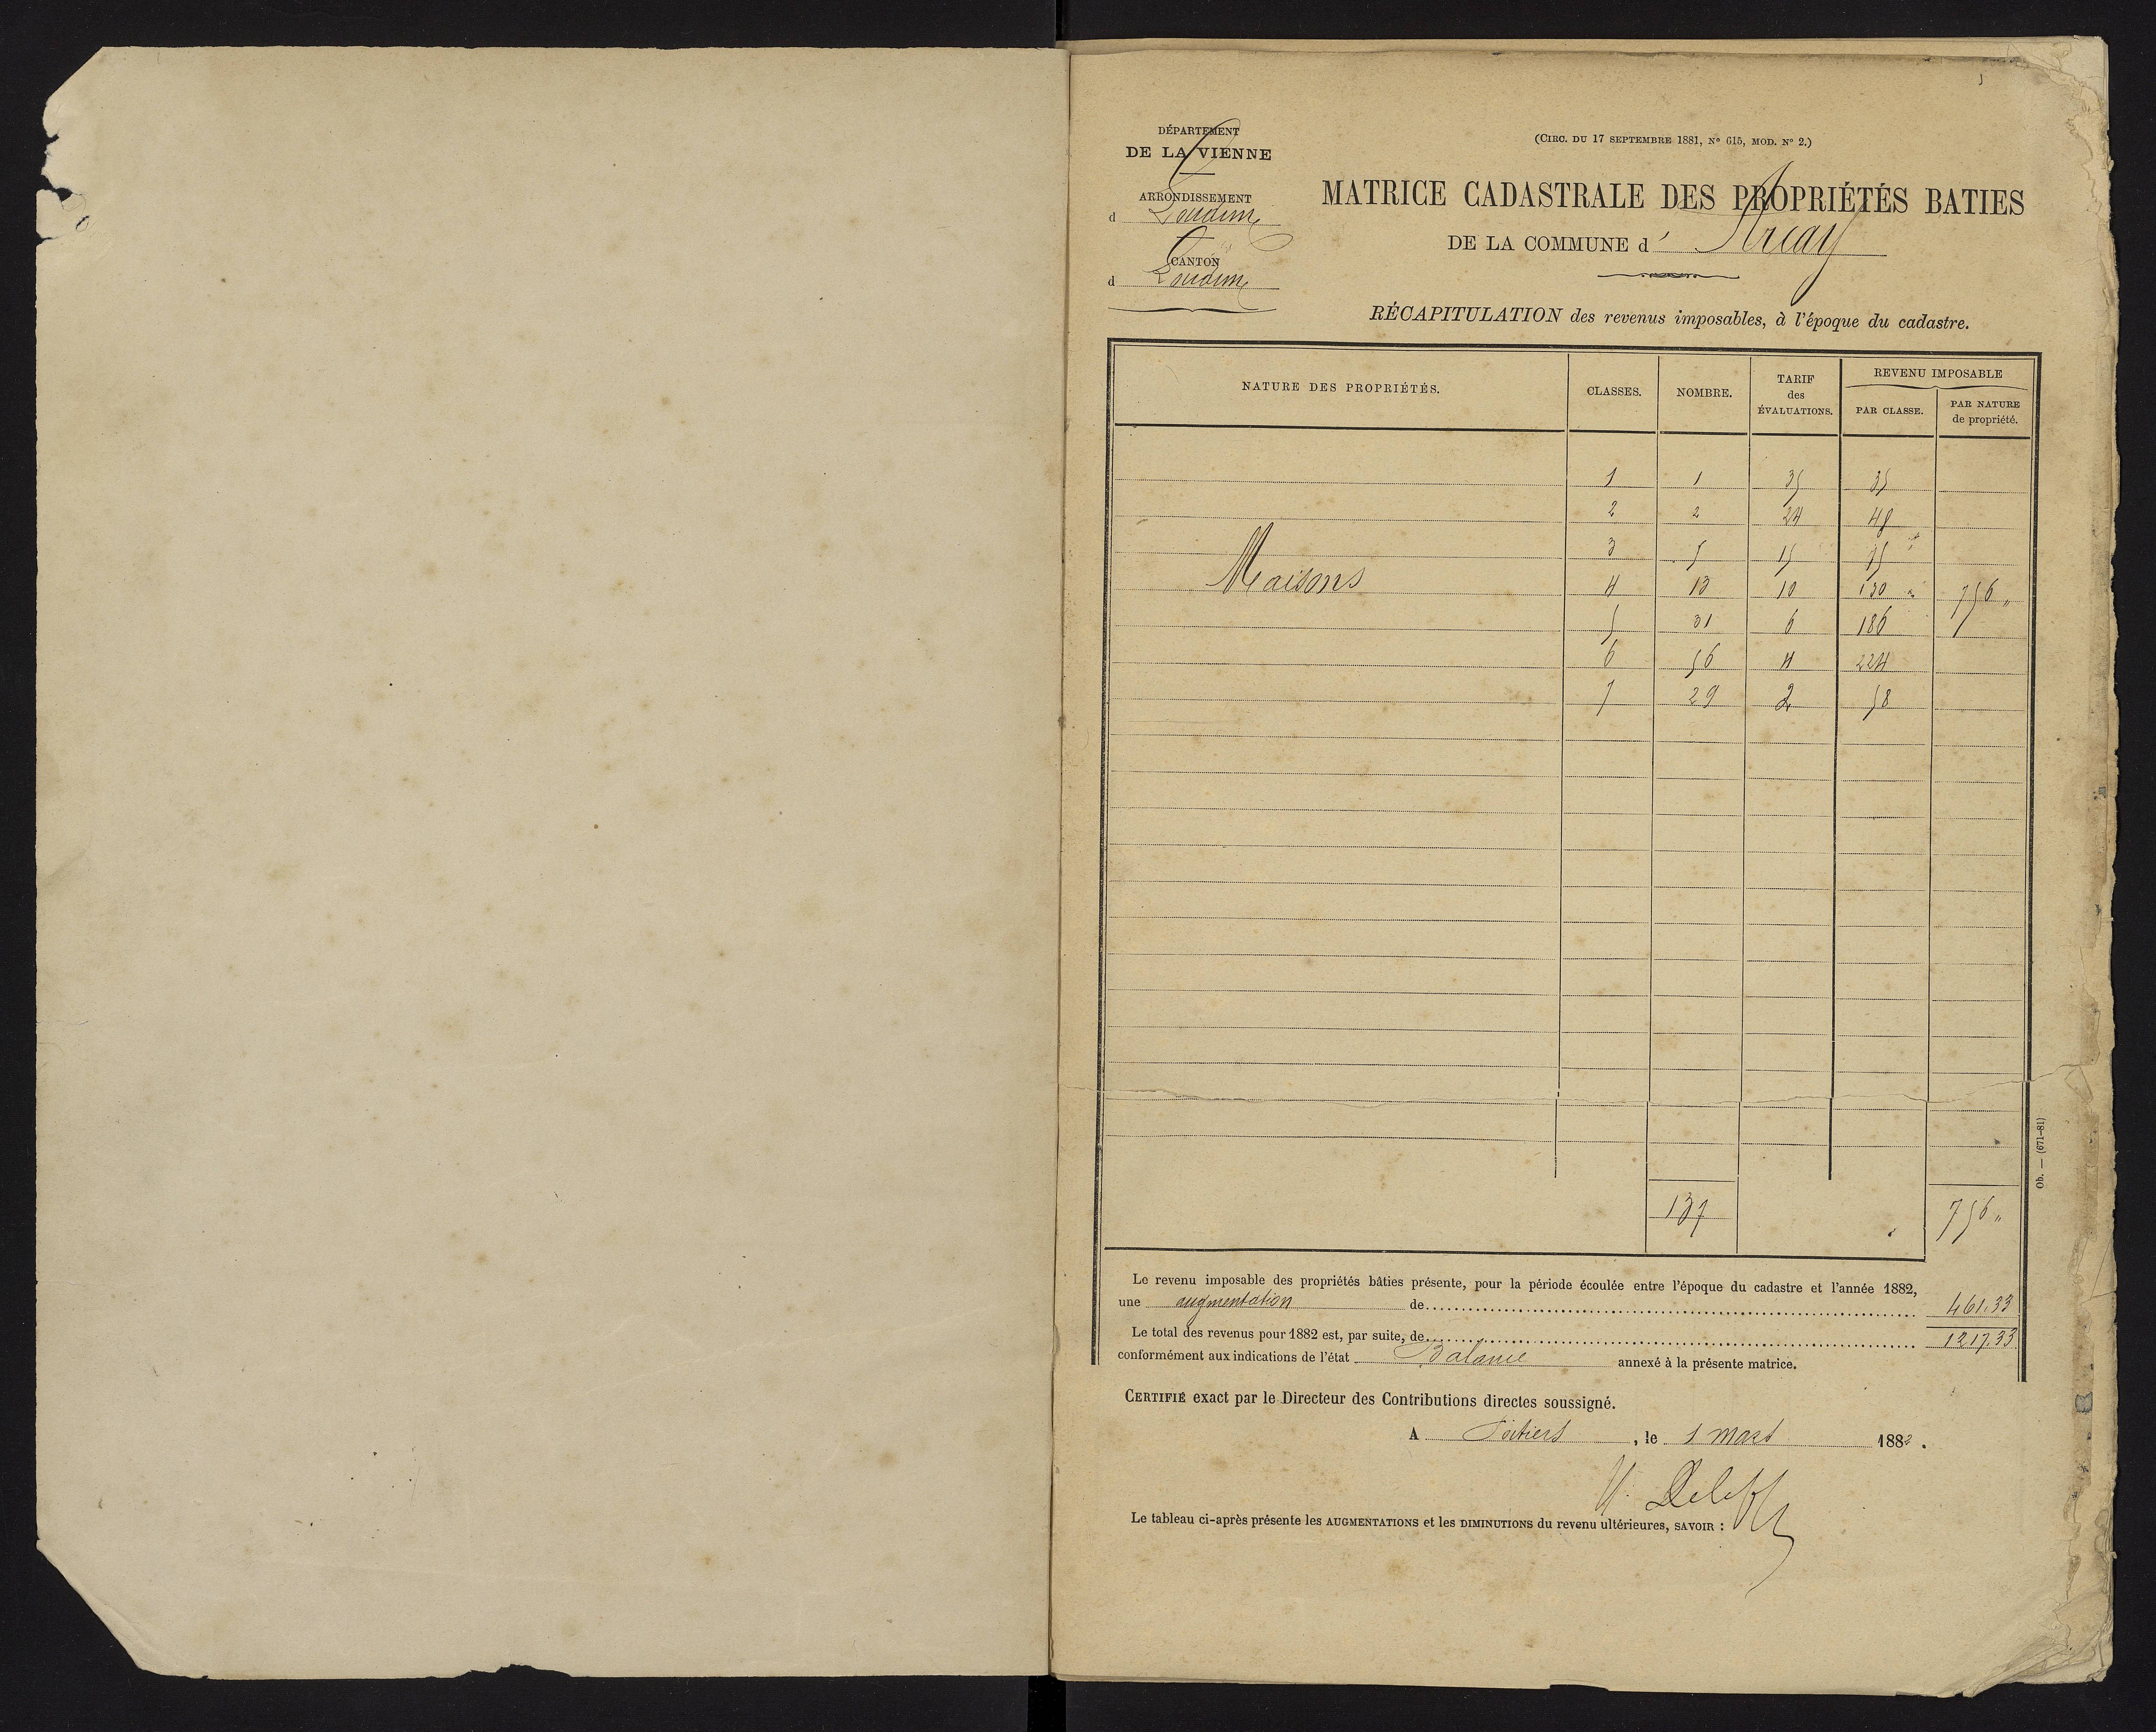 DÉPARTEMENT
DE LA VIENNE
ARRONDISSEMENT
d Loudun
CANTON
d Loudun
(CIRC. DU 17 SEPTEMBRE 1881, N° 615, MOD. N° 2.)
MATRICE CADASTRALE DES PROPRIÉTÉS BATIES
DE LA COMMUNE d' Arçay
RÉCAPITULATION des revenus imposables, à l'époque du cadastre.
NATURE DES PROPRIÉTÉS. CLASSES. NOMBRE. TARIF des ÉVALUATIONS. REVENU IMPOSABLE PAR CLASSE. PAR NATURE de propriété.
1 1 35 35
2 2 24 48
3 5 15 75
Maisons 4 13 10 130 " 756 "
5 31 6 186
6 56 4 224
7 29 2 58
137 756 "
Le revenu imposable des propriétés bâties présente, pour la période écoulée entre l'époque du cadastre et l'année 1882,
une augmentation de 461.33
Le total des revenus pour 1882 est, par suite, de 1217.33
conformément aux indications de l'état Balance annexé à la présente matrice.
CERTIFIÉ exact par le Directeur des Contributions directes soussigné.
A Poitiers, le 1 mars 1882.
Le tableau ci-après présente les AUGMENTATIONS et les DIMINUTIONS du revenu ultérieures, SAVOIR :
Ob. — (671-81)